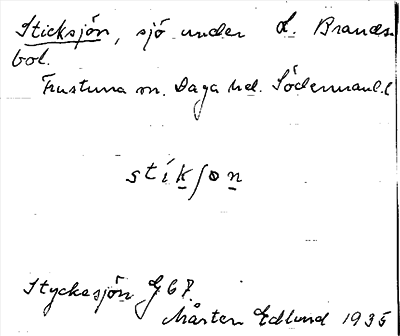 Sticksjön, sjö under L. Brands-
bol.
Frustuna sn. Daga hd. Södermanl. l
stiksøn
Styckesjön G 67.
Mårten Edlund 1935